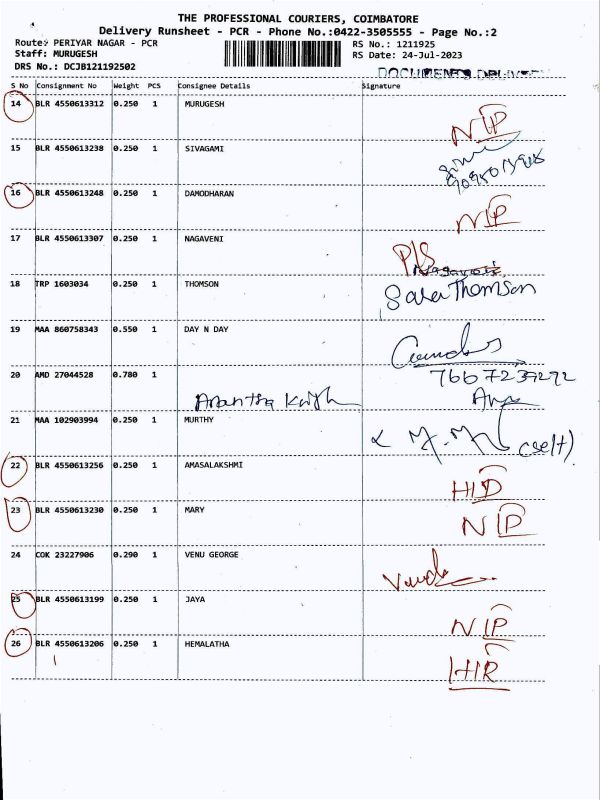 THE PROFESSIONAL COURIERS, COIMBATORE
Delivery Runsheet - PCR - Phone No.:0422-3505555 - Page No.:2
Route: PERIYAR NAGAR - PCR
RS No.: 1211925
Staff: MURUGESH
RS Date: 24-Jul-2023
DRS No.: DCJB121192502
DOCUMENTS
S No Consignment No Weight PCS Consignee Details Signature
14 BLR 4550613312 0.250 1 MURUGESH
NIP
15 BLR 4550613238 0.250 1 SIVAGAMI
16 BLR 4550613248 0.250 1 DAMODHARAN
NIP
17 BLR 4550613307 0.250 1 NAGAVENI
P/S
18 TRP 1603034 0.250 1 THOMSON
Sara Thomson
19 MAA 860758343 0.550 1 DAY N DAY
20 AMD 27044528 0.780 1
7667239292
21 MAA 102903994 0.250 1 MURTHY
(self)
22 BLR 4550613256 0.250 1 AMASALAKSHMI
HID
23 BLR 4550613230 0.250 1 MARY
NIP
24 COK 23227906 0.290 1 VENU GEORGE
25 BLR 4550613199 0.250 1 JAYA
NIP
26 BLR 4550613206 0.250 1 HEMALATHA
HIR